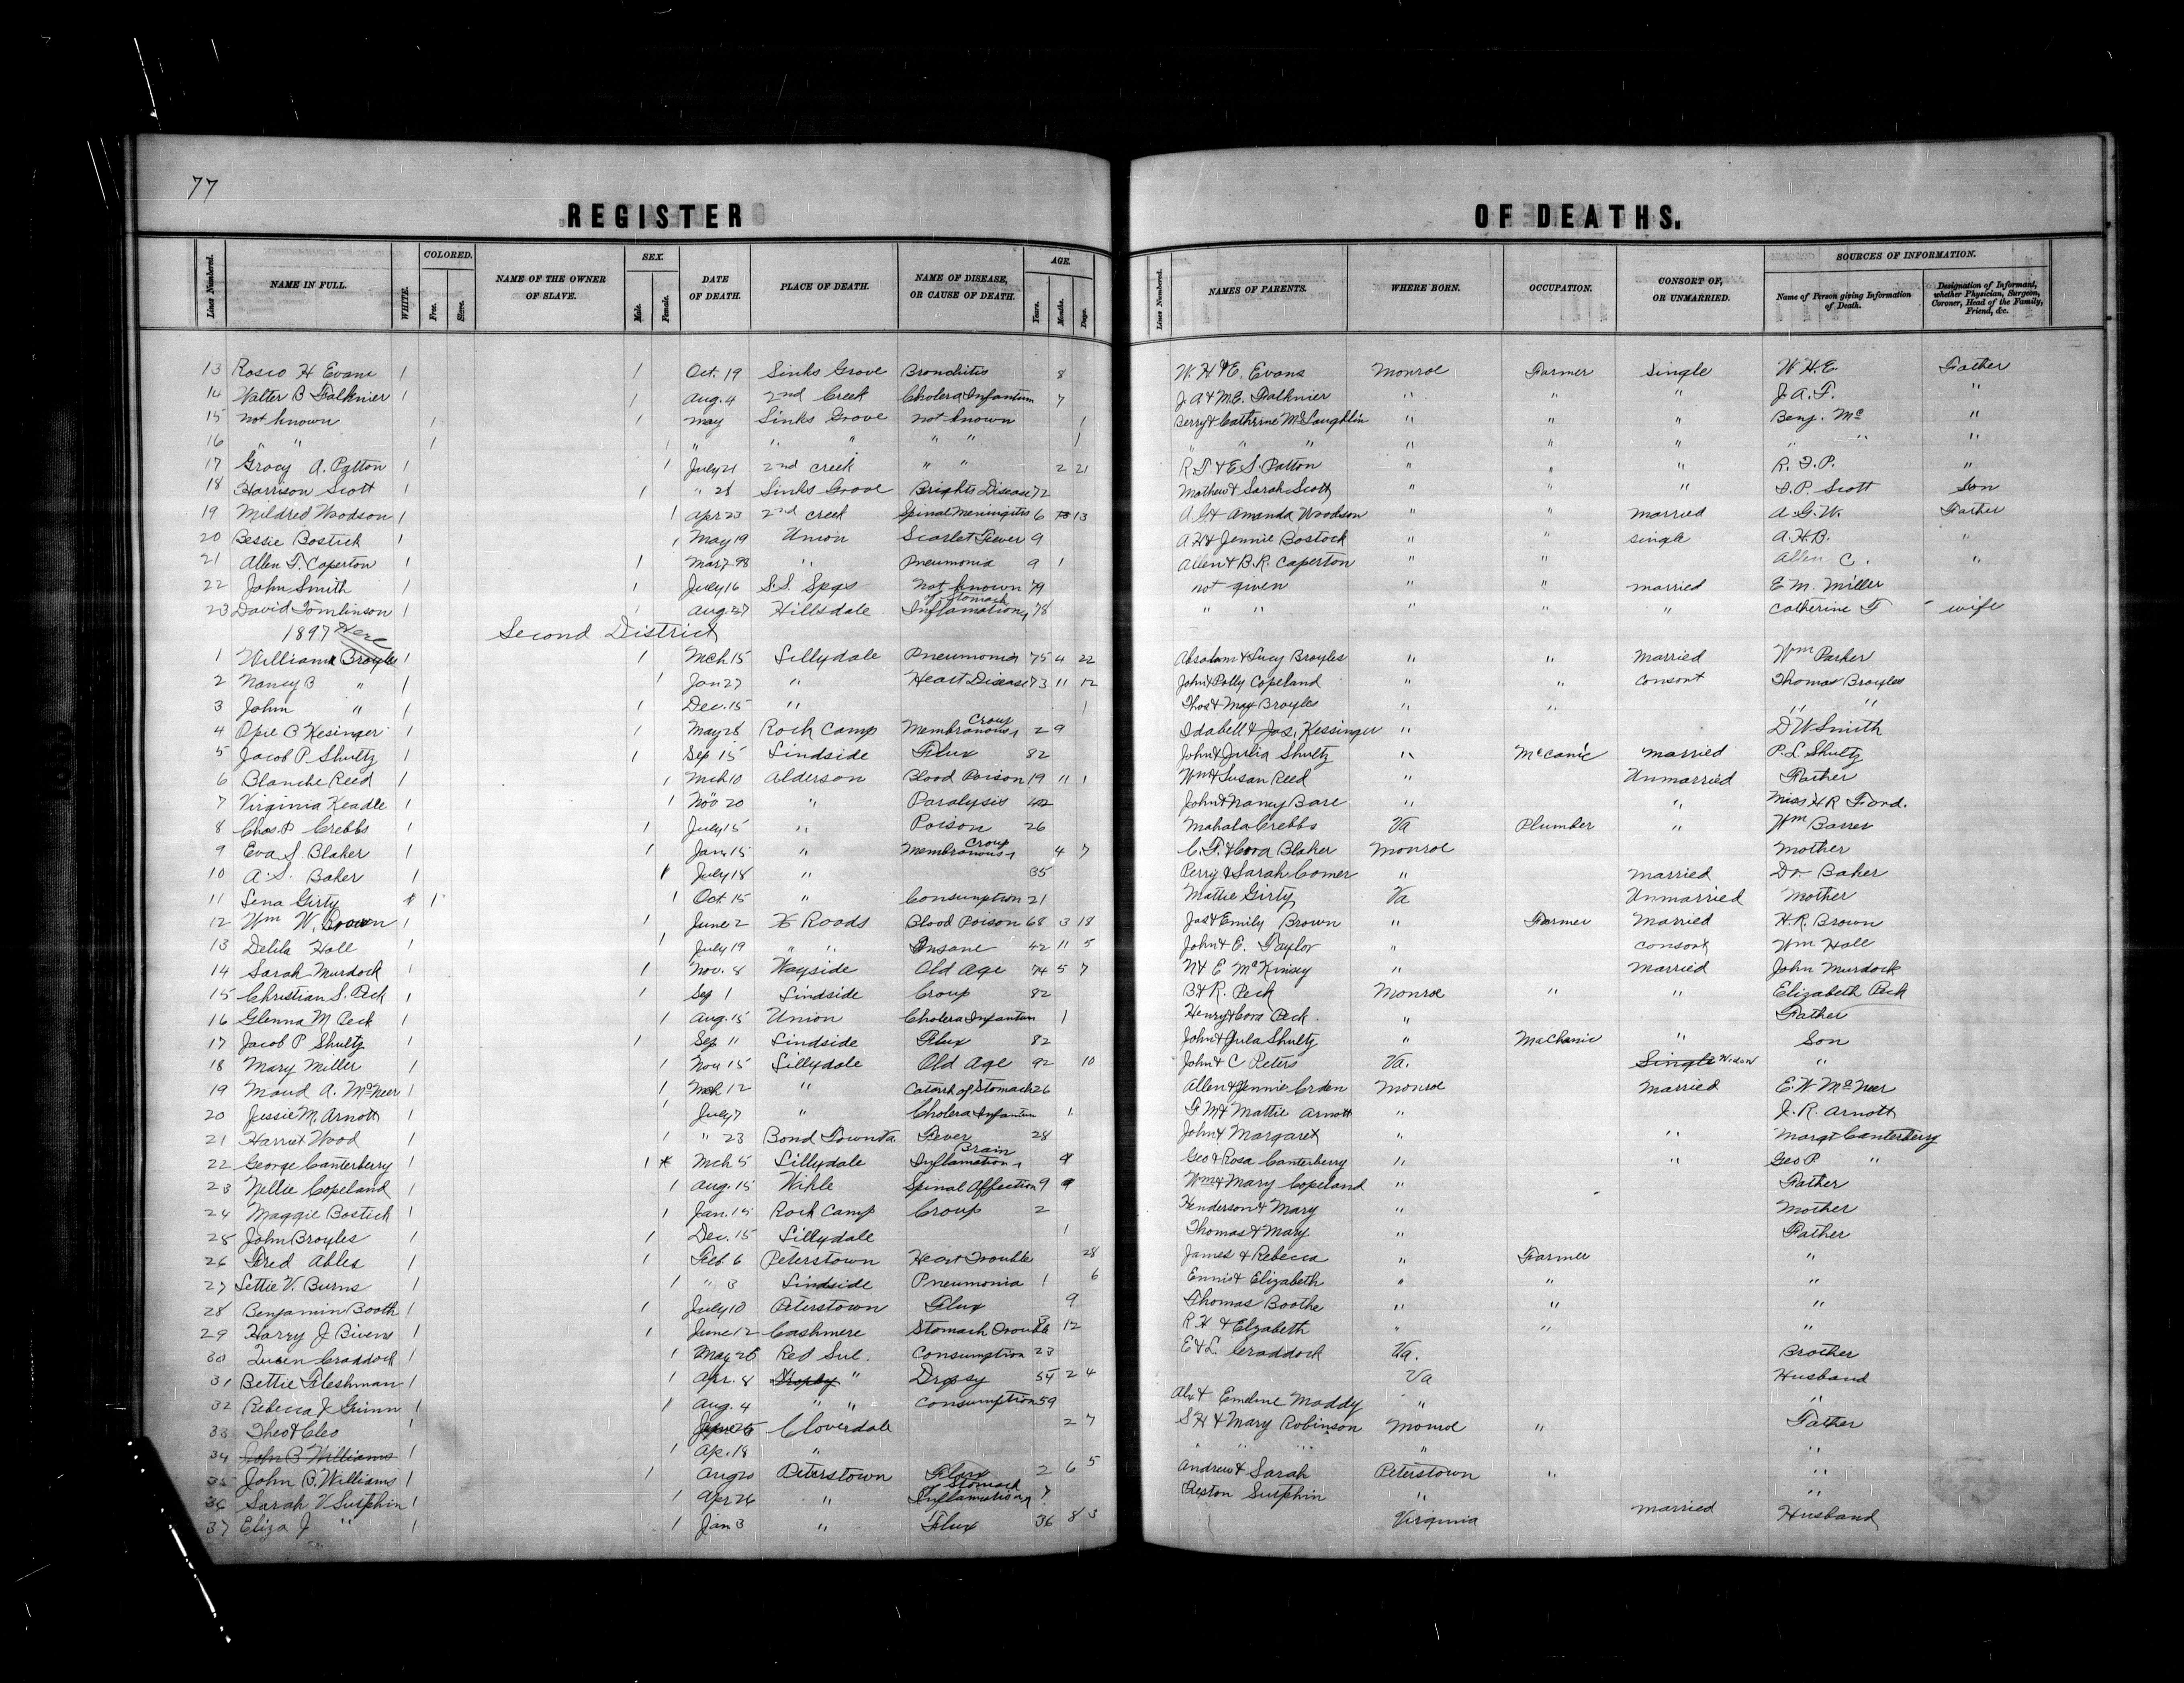 77
REGISTER OF DEATHS.
Lines Numbered. NAME IN FULL. WHITE. COLORED. Free. Slave. NAME OF THE OWNER OF SLAVE. SEX. Male. Female. DATE OF DEATH. PLACE OF DEATH. NAME OF DISEASE, OR CAUSE OF DEATH. AGE. Years. Months. Days. Lines Numbered. NAMES OF PARENTS. WHERE BORN. OCCUPATION. CONSORT OF, OR UNMARRIED. SOURCES OF INFORMATION. Name of Person giving Information of Death. Designation of Informant, whether Physician, Surgeon, Coroner, Head of the Family, Friend, &c.
13 Rosco H Evans 1 1 Oct. 19 Sinks Grove Bronchitis 8 W. H & E. Evans Monroe Farmer Single W. H. E. Father
14 Walter B Falknier 1 1 Aug. 4 2nd Creek Cholera Infantum 7 J. A & M. E. Falknier " " " J. A. F. "
15 not known 1 1 may Sinks Grove not known 1 Berry & Cathrine McLaughlin " " " Benj. Mc "
16 " " 1 1 " " " " " 1 " " " " " " " " "
17 Gracy A. Patton 1 1 July 21 2nd creek " " 2 21 R. F. & E. S. Patton " " " R. F. P. "
18 Harrison Scott 1 1 " 28 Sinks Grove Brights Disease 72 Mathew & Sarah Scott " " " F. P. Scott Son
19 Mildred Woodson 1 1 Apr 23 2nd creek Spinal Meningitis 6 13 A. G & Amanda Woodson " " married A. G. W. Father
20 Bessie Bostick 1 1 May 19 Union Scarlet Fever 9 A H & Jennie Bostock " " single A. H. B. "
21 Allen T. Caperton 1 1 Mar 7 98 " Pneumonia 9 1 Allen & B. R. Caperton " " Allen C. "
22 John Smith 1 1 July 16 S. S. Spgs Not known 79 not given " " married E M. Miller
23 David Tomlinson 1 1 Aug 27 Hillsdale Inflamation of Stomach 78 " " " " " Catherine T wife
1897 Here Second District
1 William Broyles 1 1 Mch 15 Lillydale Pneumonia 75 4 22 Absolam & Lucy Broyles " " Married Wm Parker
2 Nancy B " 1 1 Jan 27 " Heart Disease 73 11 12 John & Polly Copeland " " Consort Thomas Broyles
3 John " 1 1 Dec. 15 " 1 Thos & May Broyles " " " "
4 Opie B Kesinger 1 1 May 28 Rock Camp Membranous Croup 2 9 Idabell & Jas. Kessinger " D W Smith
5 Jacob P Shultz 1 1 Sep 15 Lindside Flux 82 John & Julia Shultz " Mccanic Married P. L Shultz
6 Blanche Reed 1 1 Mch 10 Alderson Blood Poison 19 11 1 Wm & Susan Reed " Unmarried Father
7 Virginia Keadle 1 1 Nov 20 " Paralysis John & Nancy Bare " " Miss H R Ford.
8 Chas. P Crebbs 1 1 July 15 " Poison 26 Mahala Crebbs Va Plumber " Wm Barrer
9 Eva S. Blaker 1 1 Jan. 15 " Membranous Croup 4 7 C. F. & Cora Blaker Monroe Mother
10 A. S. Baker 1 1 July 18 " 35 Perry & Sarah Comer " married Dr Baker
11 Lena Girty 1 1 Oct. 15 " Consumption 21 Mattie Girty Va Unmarried Mother
12 Wm W. Brown 1 1 June 2 X Roads Blood Poison 68 3 18 Jas & Emily Brown " Farmer Married H. R. Brown
13 Delila Hall 1 1 July 19 " " Insane 42 11 5 John & E. Taylor " consort Wm Hall
14 Sarah Murdock 1 1 Nov. 8 Wayside Old Age 74 5 7 N & E McKinsey " Married John Murdock
15 Christian S. Peck 1 1 Sep 1 Lindside Croup 82 B & R. Peck Monroe " " Elizabeth Peck
16 Glenna M Peck 1 1 Aug. 15 Union Cholera Infantum 1 Henry & Cora Peck " Father
17 Jacob P Shultz 1 1 Sep 11 Lindside Flux 82 John & Jula Shultz " Machanic " Son
18 Mary Miller 1 1 Nov 15 Lillydale Old Age 92 10 John & C Peters Va. Single Widow "
19 Maud A. McNeer 1 1 Mch 12 " Catarh of Stomach 26 Allen & Jennie Crden Monroe Married E. W McNeer
20 Jessie M. Arnott 1 1 July 7 " Cholera Infantum 1 F M & Mattie Arnott " J. R. Arnott
21 Harriet Wood 1 1 " 23 Bond Town Va Fever 28 John & Margaret " " Margt Canterberry
22 George Canterberry 1 1 Mch 5 Lillydale Inflamation Brain 9 Geo & Rosa Canterberry " " Geo P. "
23 Nellie Copeland 1 1 Aug. 15 Wikle Spinal Affection 9 9 Wm & Mary Copeland " Father
24 Maggie Bostick 1 1 Jan. 15 Rock Camp Croup 2 Henderson & Mary " Mother
25 John Broyles 1 1 Dec. 15 Lillydale 1 Thomas & Mary " Father
26 Fred Ables 1 1 Feb. 6 Peterstown Heart Trouble 28 James & Rebecca " Farmer "
27 Lettie V. Burns 1 1 " 3 Lindside Pneumonia 1 6 Ennis & Elizabeth " " "
28 Benjamin Booth 1 1 July 10 Peterstown Flux 9 Thomas Boothe " " "
29 Harry J Bivens 1 1 June 12 Cashmere Stomach Trouble 12 R H & Elizabeth " " "
30 Craddock 1 1 May 26 Red Sul. Consumption 23 E & L. Craddock Va. Brother
31 Bettie Fleshman 1 1 Apr. 8 Dropsy " Dropsy 54 2 4 Va Husband
32 Rebecca J Grimm 1 1 Aug. 4 " " Consumption 59 Alx & Emeline Maddy " "
33 Theo & Cleo Cloverdale 2 7 S H & Mary Robinson Monroe " Father
34 John B Williams 1 Ap. 18 " " " " " "
35 John B. Williams 1 1 Aug 20 Peterstown Flux 2 6 5 Andrew & Sarah Peterstown " "
36 Sarah V Surphin 1 1 Apr 26 " Inflamation of Stomach 7 Preston Surphin " "
37 Eliza J " 1 1 Jan 3 " Flux 36 8 3 Virginia married Husband